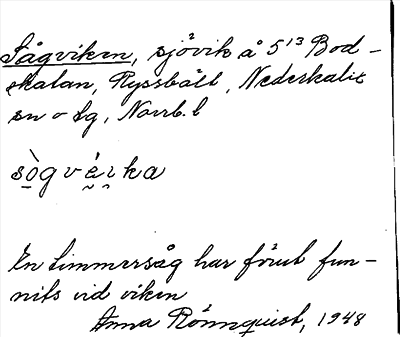 Sågviken, sjövik å 5¹³ Bod-
skatan, Ryssbält, Nederkalix
sn o lg, Norrb. l
sò̱gvé̮i̯ka
En timmersåg har förut fun-
nits vid viken
Anna Rönnquist, 1948